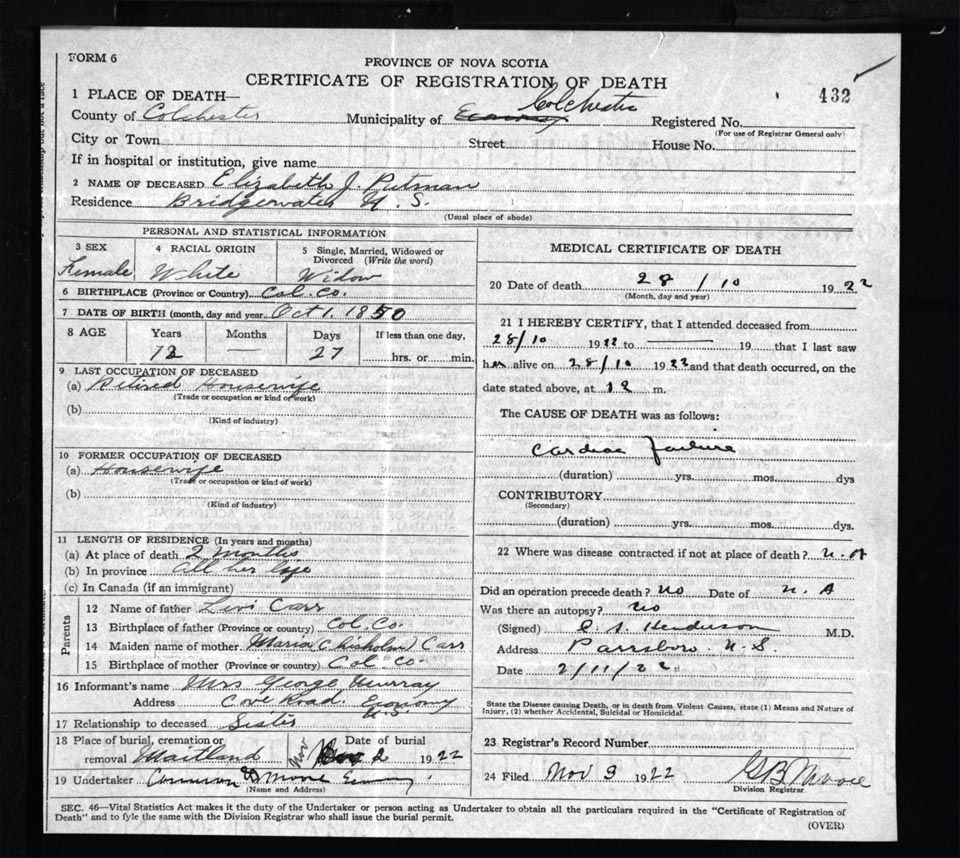 FORM 6
PROVINCE OF NOVA SCOTIA
CERTIFICATE OF REGISTRATION OF DEATH
432
1 PLACE OF DEATH—
County of Colchester Municipality of Economy Colchester Registered No.
(For use of Registrar General only)
City or Town Street House No.
If in hospital or institution, give name
2 NAME OF DECEASED Elizabeth J. Putman
Residence Bridgewater N. S.
(Usual place of abode)
PERSONAL AND STATISTICAL INFORMATION
3 SEX 4 RACIAL ORIGIN 5 Single, Married, Widowed or Divorced (Write the word)
Female White Widow
6 BIRTHPLACE (Province or Country) Col. Co.
7 DATE OF BIRTH (month, day and year) Oct 1. 1850
8 AGE Years Months Days If less than one day,
72 — 27 hrs. or min.
9 LAST OCCUPATION OF DECEASED
(a) Retired Housewife
(Trade or occupation or kind of work)
(b)
(Kind of industry)
10 FORMER OCCUPATION OF DECEASED
(a) Housewife
(Trade or occupation or kind of work)
(b)
(Kind of industry)
11 LENGTH OF RESIDENCE (In years and months)
(a) At place of death 2 Months
(b) In province all her life
(c) In Canada (if an immigrant)
Parents
12 Name of father Levi Carr
13 Birthplace of father (Province or country) Col. Co.
14 Maiden name of mother Maria (Chisholm) Carr
15 Birthplace of mother (Province or country) Col. Co.
16 Informant's name Mrs George Murray
Address Cove Road. Economy N.S.
17 Relationship to deceased Sister
18 Place of burial, cremation or Date of burial
removal Maitland Nov 2 1922
19 Undertaker Moore
(Name and Address)
MEDICAL CERTIFICATE OF DEATH
20 Date of death 28 / 10 1922
(Month, day and year)
21 I HEREBY CERTIFY, that I attended deceased from
28/10 1922 to — 19 that I last saw
her alive on 28/10 1922 and that death occurred, on the
date stated above, at 12 m.
The CAUSE OF DEATH was as follows:
Cardiac failure
(duration) yrs. mos. dys
CONTRIBUTORY
(Secondary)
(duration) yrs. mos. dys.
22 Where was disease contracted if not at place of death? N. A
Did an operation precede death? No Date of N. A
Was there an autopsy? No
(Signed) Henderson M.D.
Address Parrsboro. N. S.
Date 2/11/22
State the Disease causing Death, or in death from Violent Causes, state (1) Means and Nature of
Injury, (2) whether Accidental, Suicidal or Homicidal.
23 Registrar's Record Number
24 Filed Nov 3 1922 G B Moore
Division Registrar
SEC. 46—Vital Statistics Act makes it the duty of the Undertaker or person acting as Undertaker to obtain all the particulars required in the "Certificate of Registration of
Death" and to fyle the same with the Division Registrar who shall issue the burial permit.
(OVER)